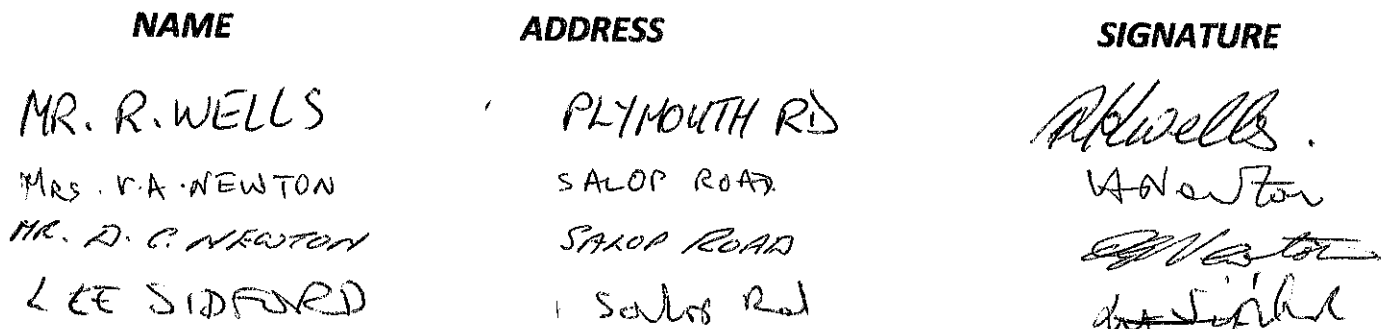 NAME ADDRESS SIGNATURE
MR. R. WELLS PLYMOUTH RD RHwells.
MRS. V.A. NEWTON SALOP ROAD VANewton
MR. D. C. NEWTON SALOP ROAD Newton
LEE SIDFORD Salop Rd